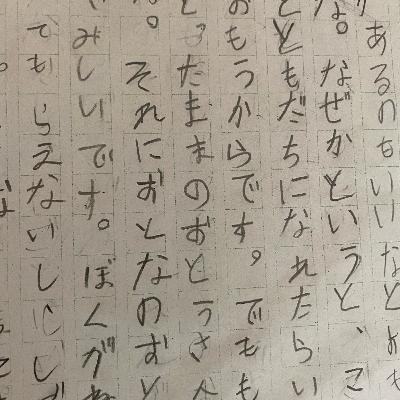 あるのもいいなとおも
な。なぜかというと、こ
とともだちになれたらい
おもうからです。でもも
たまきのおとうさん
。それにおとなのずと
みしいです。ぼくがね
でもらえないしにしず